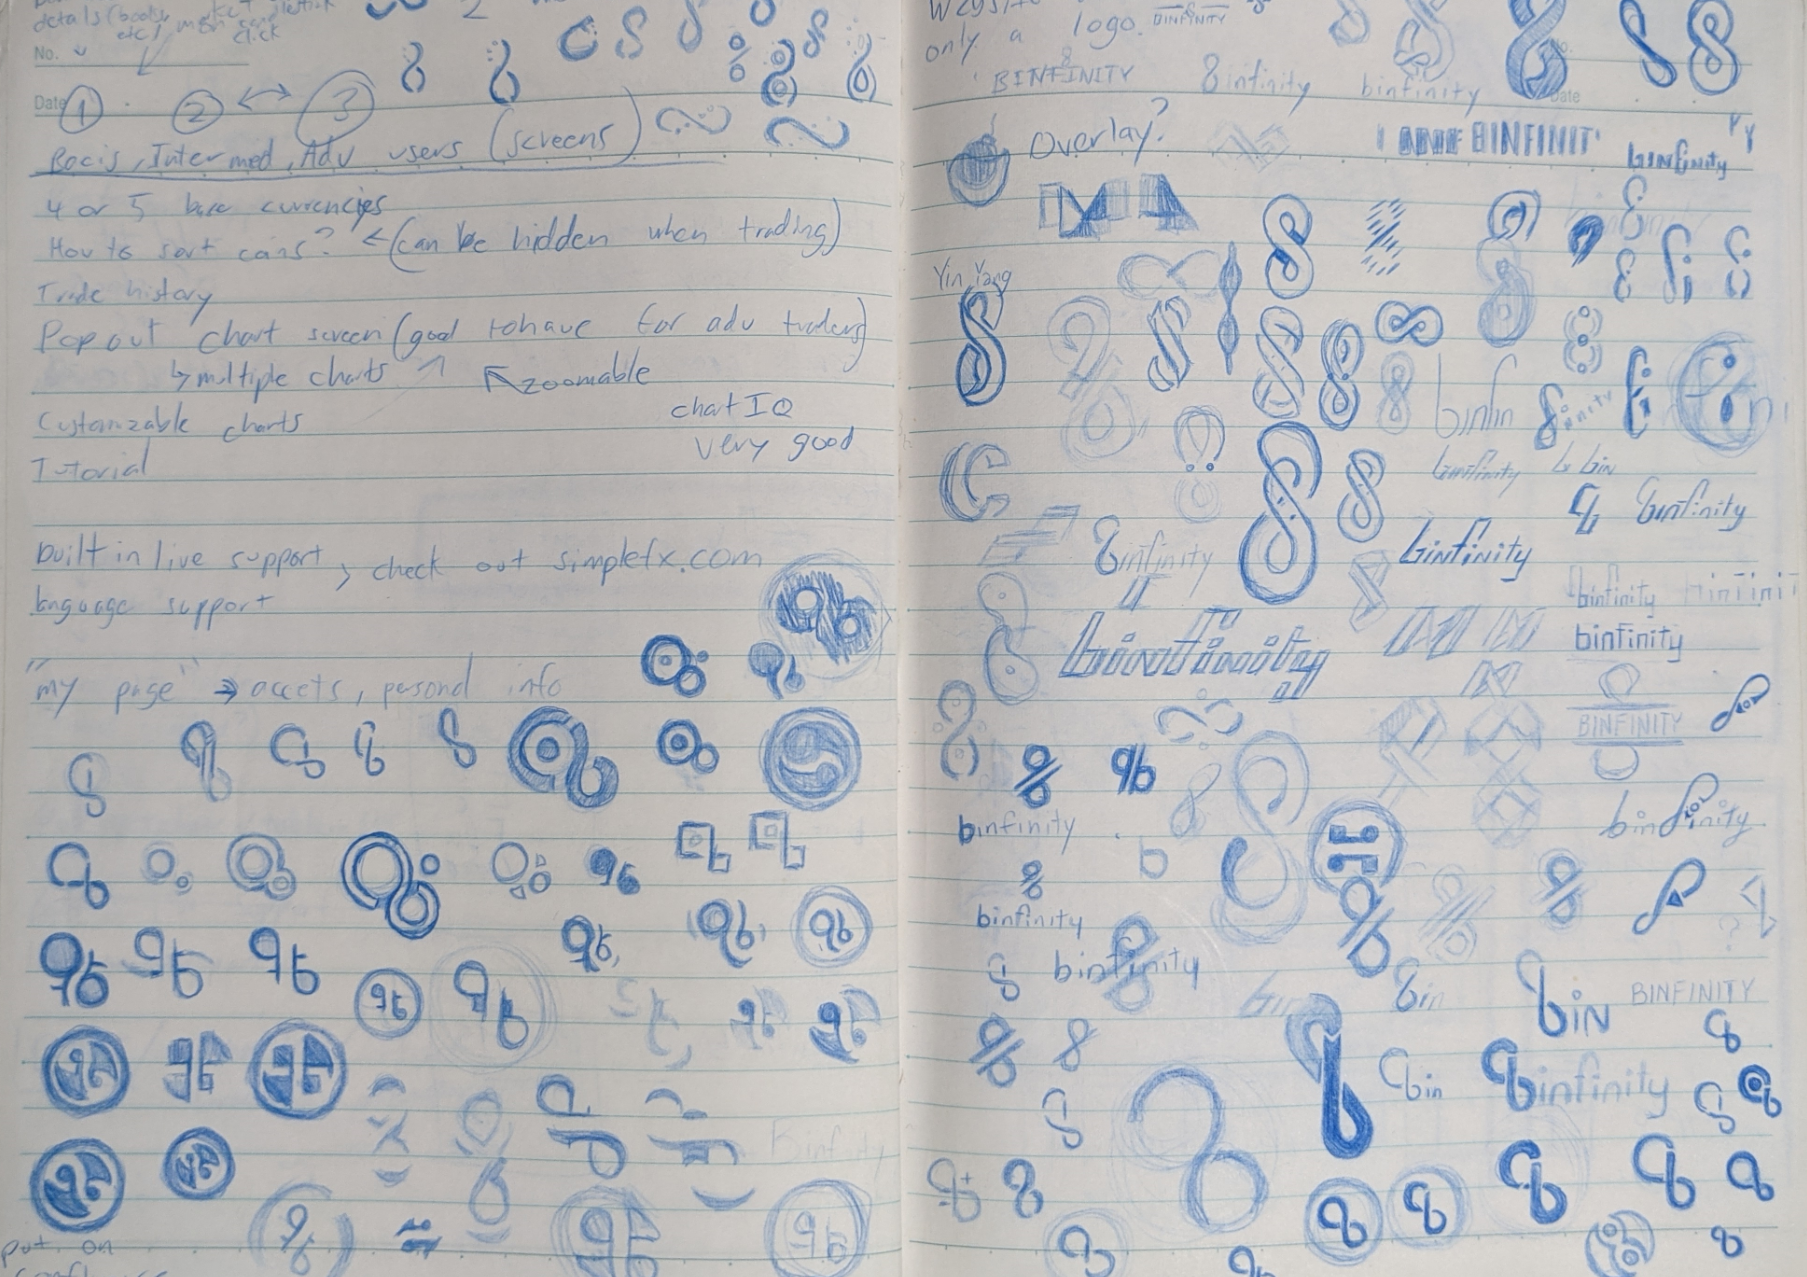 details (books,
etc)
click
No.
Date
1 2 ↔ 3
Bacis, Intermed, Adv users (screens)
4 or 5 base currencies
How to sort coins? ← (can be hidden when trading)
Trade history
Pop out chart screen (good to have for adv traders)
↳ multiple charts ↖ zoomable
Customzable charts
chat IQ
very good
Tutorial
built in live support > check out simplefx.com
language support
"my page" → accets, personal info
Binfinity
put on
only a logo.
BINFINITY
BINFINITY
8infinity
binfinity
Date
Overlay?
BINFINIT
binfinity
Yin Yang
binfin
binfinity
bin
binfinity
8infinity
binfinity
binfinity
binfinity
binfinity
BINFINITY
binfinity
binfinity
binfinity
binfinity
bin
bin
BINFINITY
bin
binfinity